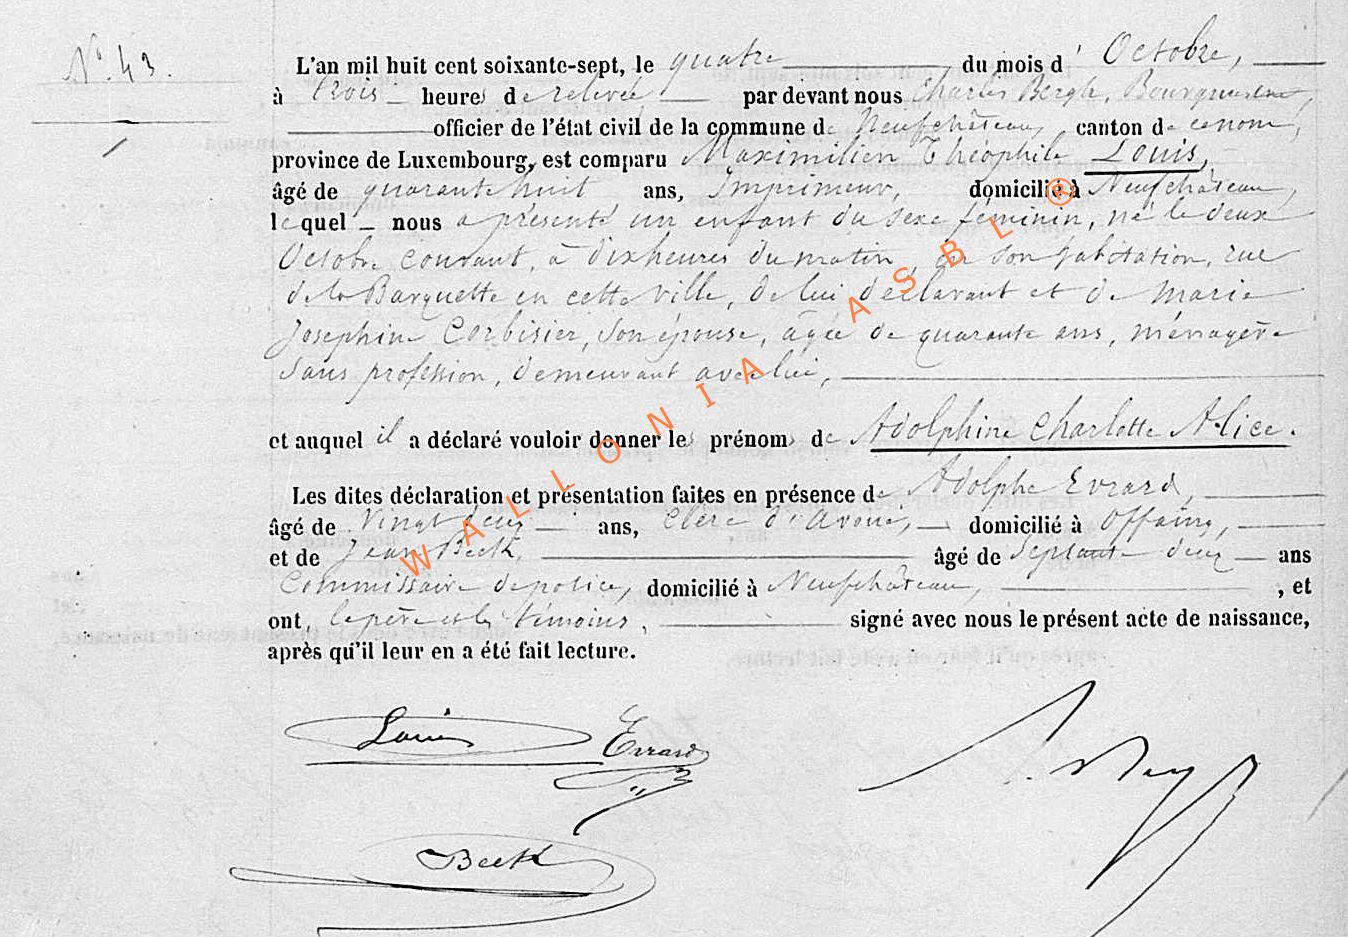 N° 43.
L'an mil huit cent soixante-sept, le quatre du mois d'Octobre,
à trois heures de relevée par devant nous Charles Bergh, Bourgmestre,
officier de l'état civil de la commune de Neufchâteau, canton de ce nom,
province de Luxembourg, est comparu Maximilien Théophile Louis,
âgé de quarante huit ans, Imprimeur, domicilié à Neufchâteau,
lequel nous a présenté un enfant du sexe féminin, né le deux
Octobre courant, à dix heures du matin, en son habitation, rue
de la Barquette en cette ville, de lui déclarant et de Marie
Josephine Corbisier, son épouse, âgée de quarante ans, ménagère
sans profession, demeurant avec lui,
et auquel il a déclaré vouloir donner les prénoms de Adolphine Charlotte Alice.
Les dites déclaration et présentation faites en présence de Adolphe Evrard,
âgé de Vingt deux ans, Clerc d'Avoué, domicilié à Offaing,
et de Jean Beck, âgé de Septante deux ans
Commissaire de police, domicilié à Neufchâteau, , et
ont, le père et les témoins, signé avec nous le présent acte de naissance,
après qu'il leur en a été fait lecture.
Louis Evrard
Beck
WALLONIA ASBL ®